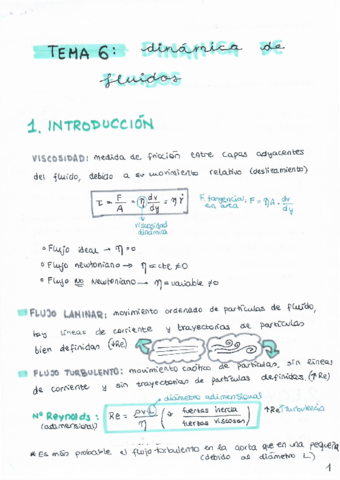 TEMA 6: dinámica de
fluidos
1. INTRODUCCIÓN
VISCOSIDAD: medida de fricción entre capas adyacentes
del fluido, debido a su movimiento relativo (deslizamiento)
τ = F/A = η dv/dy = η γ̇
viscosidad
dinámica
F. tangencial: F = ηA · dv/dy
en área
° Flujo ideal → η = 0
° Flujo newtoniano → η = cte ≠ 0
° Flujo NO Newtoniano → η = variable ≠ 0
FLUJO LAMINAR: movimiento ordenado de partículas de fluido,
hay líneas de corriente y trayectorias de partículas
bien definidas (↓Re)
FLUJO TURBULENTO: movimiento caótico de partículas, sin líneas
de corriente y sin trayectorias de partículas definidas (↑Re)
diámetro adimensional
Nº Reynolds: Re = ρvL/η (fuerzas inercia/fuerzas viscosas) ↑Re ↑Turbulencia
(adimensional)
* Es más probable el flujo turbulento en la aorta que en una pequeña
(debido al diámetro L)
1